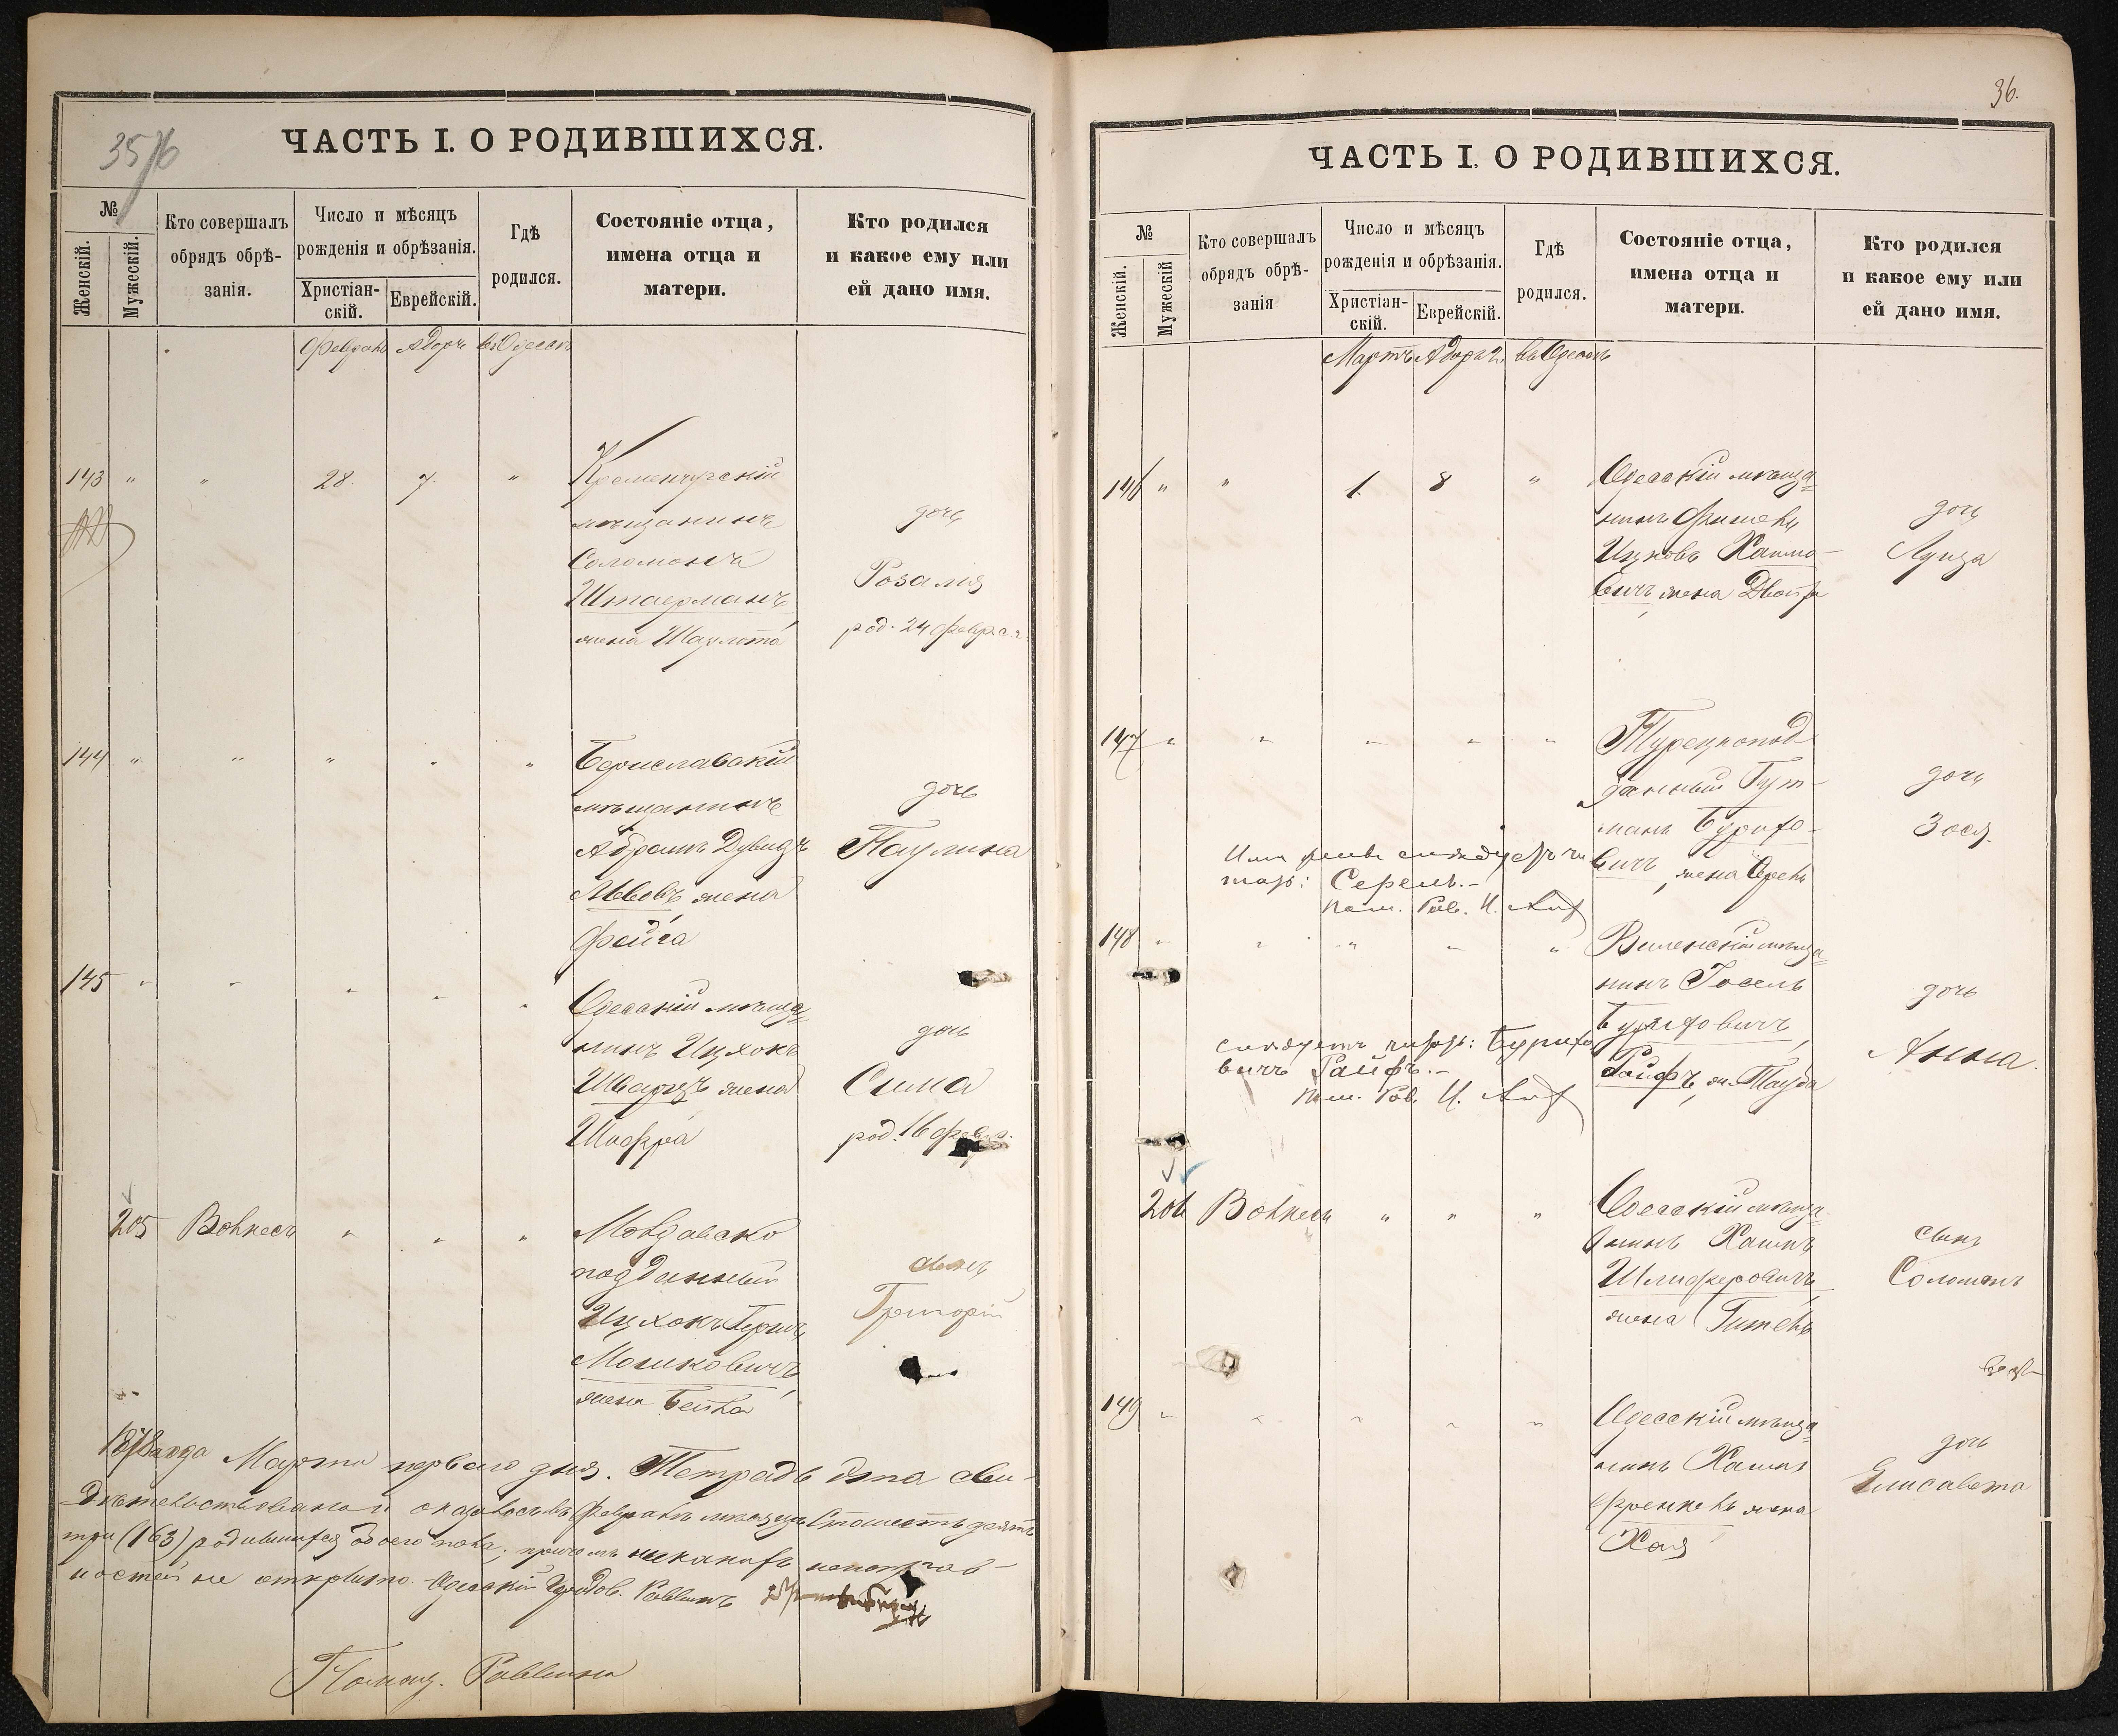 35
ЧАСТЬ I. О РОДИВШИХСЯ.
№
Женскій.
Мужескій.
Кто совершалъ
обрядъ обрѣ-
занія.
Число и мѣсяцъ
рожденія и обрѣзанія.
Христіан-
скій.
Еврейскій.
Гдѣ
родился.
Состояніе отца,
имена отца и
матери.
Кто родился
и какое ему или
ей дано имя.
Февраль Адаръ въ Одессѣ
143 " " 28. 7. " Кременчугскій
мѣщанинъ
Соломонъ
Штаерманъ,
жена Шарлота
дочь
Розалія
род. 24 февр. с.г.
144 " " " " " Бериславскій
мѣщанинъ
Абрамъ Дувидъ
Львовъ, жена
Фейга
дочь
Паулина
145 " " " " " Одесскій мѣща=
нинъ Ицхокъ
Шварцъ жена
Шифра
дочь
Сима
род. 16 февр.
205 " " " Молдавско
подданный
Ицхокъ Герш
Мошковичъ,
жена Бейла
сынъ
Григорій
1878 года Марта перваго дня. Тетрадь эта сви-
дѣтельствована и оказалось въ Февралѣ мѣсяцѣ Сто шестьдесятъ
три (163) родившихся обоего пола, причемъ никакихъ неисправ-
ностей не открыто. Одесскій Раввинъ
Помощ. Раввина
36.
ЧАСТЬ I. О РОДИВШИХСЯ.
№
Женскій.
Мужескій
Кто совершалъ
обрядъ обрѣ-
занія
Число и мѣсяцъ
рожденія и обрѣзанія.
Христіан-
скій.
Еврейскій.
Гдѣ
родился.
Состояніе отца,
имена отца и
матери.
Кто родился
и какое ему или
ей дано имя.
Мартъ Адаръ 2. въ Одессѣ
146 " " 1. 8 " Одесскій мѣща=
нинъ Фишель
Ицковъ Хаимо-
вичъ, жена Двойра
дочь
Луиза
147 " " " " " Турецкопод
данный Гут-
манъ Бурихо-
вичъ, жена
дочь
Зося.
Имя жены слѣдуетъ чи
тать: Серель.-
Пом. Рав.
148 " " " " " Виленскій мѣща=
нинъ Іосель
Буриховичъ
Райфъ, ж. Тауба
дочь
Анна.
слѣдуетъ читать: Бурихо
вичъ Райфъ.-
Пом. Рав.
206 " " " Одесскій мѣща=
нинъ Хаимъ
Шлиферовичъ,
жена Гитель
сынъ
Соломонъ
149 " " " " " Одесскій мѣща=
нинъ Хаимъ
Френкель жена
Хая
дочь
Елисавета